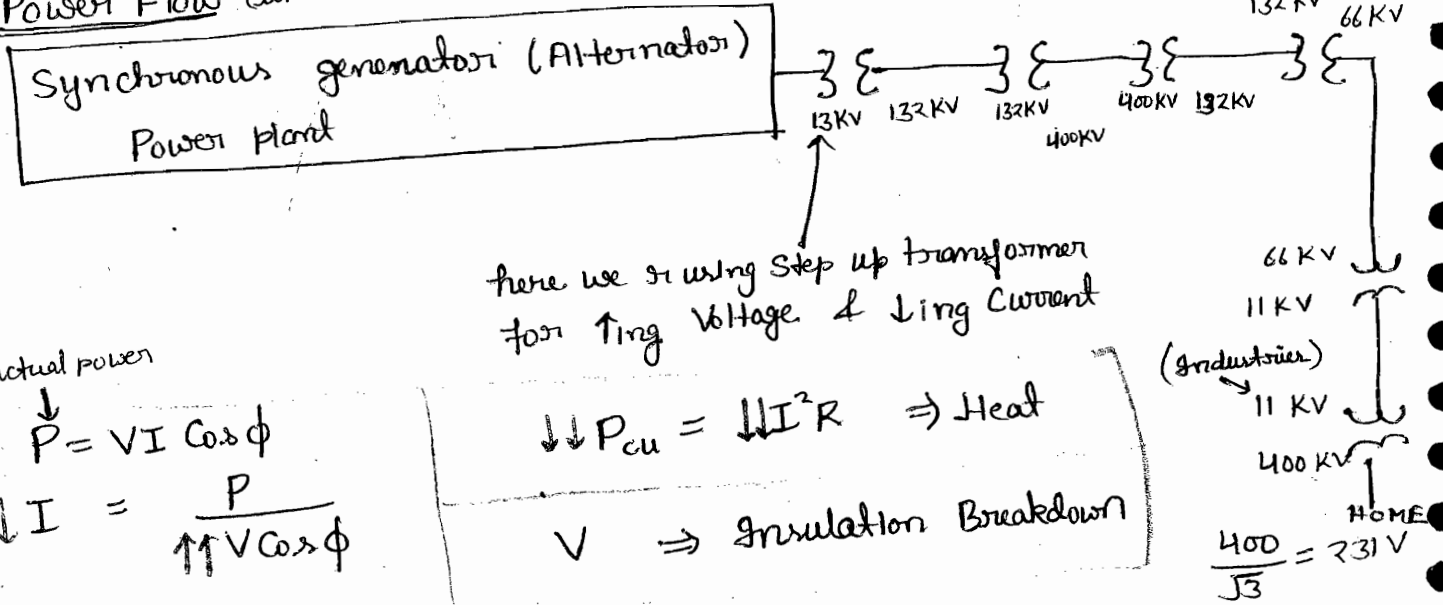 Power Flow
132 KV
66 KV
Synchronous generator (Alternator)
Power plant
13KV 132KV 132KV 400KV 132KV
400KV
here we r using Step up transformer
for ↑ing Voltage & ↓ing Current
66 KV
11 KV
(Industries)
11 KV
400 KV
HOME
400/√3 = 231 V
actual power
↓
P = VI Cosφ
↓I = P/↑↑VCosφ
↓↓Pcu = ↓↓I²R ⇒ Heat
V ⇒ Insulation Breakdown